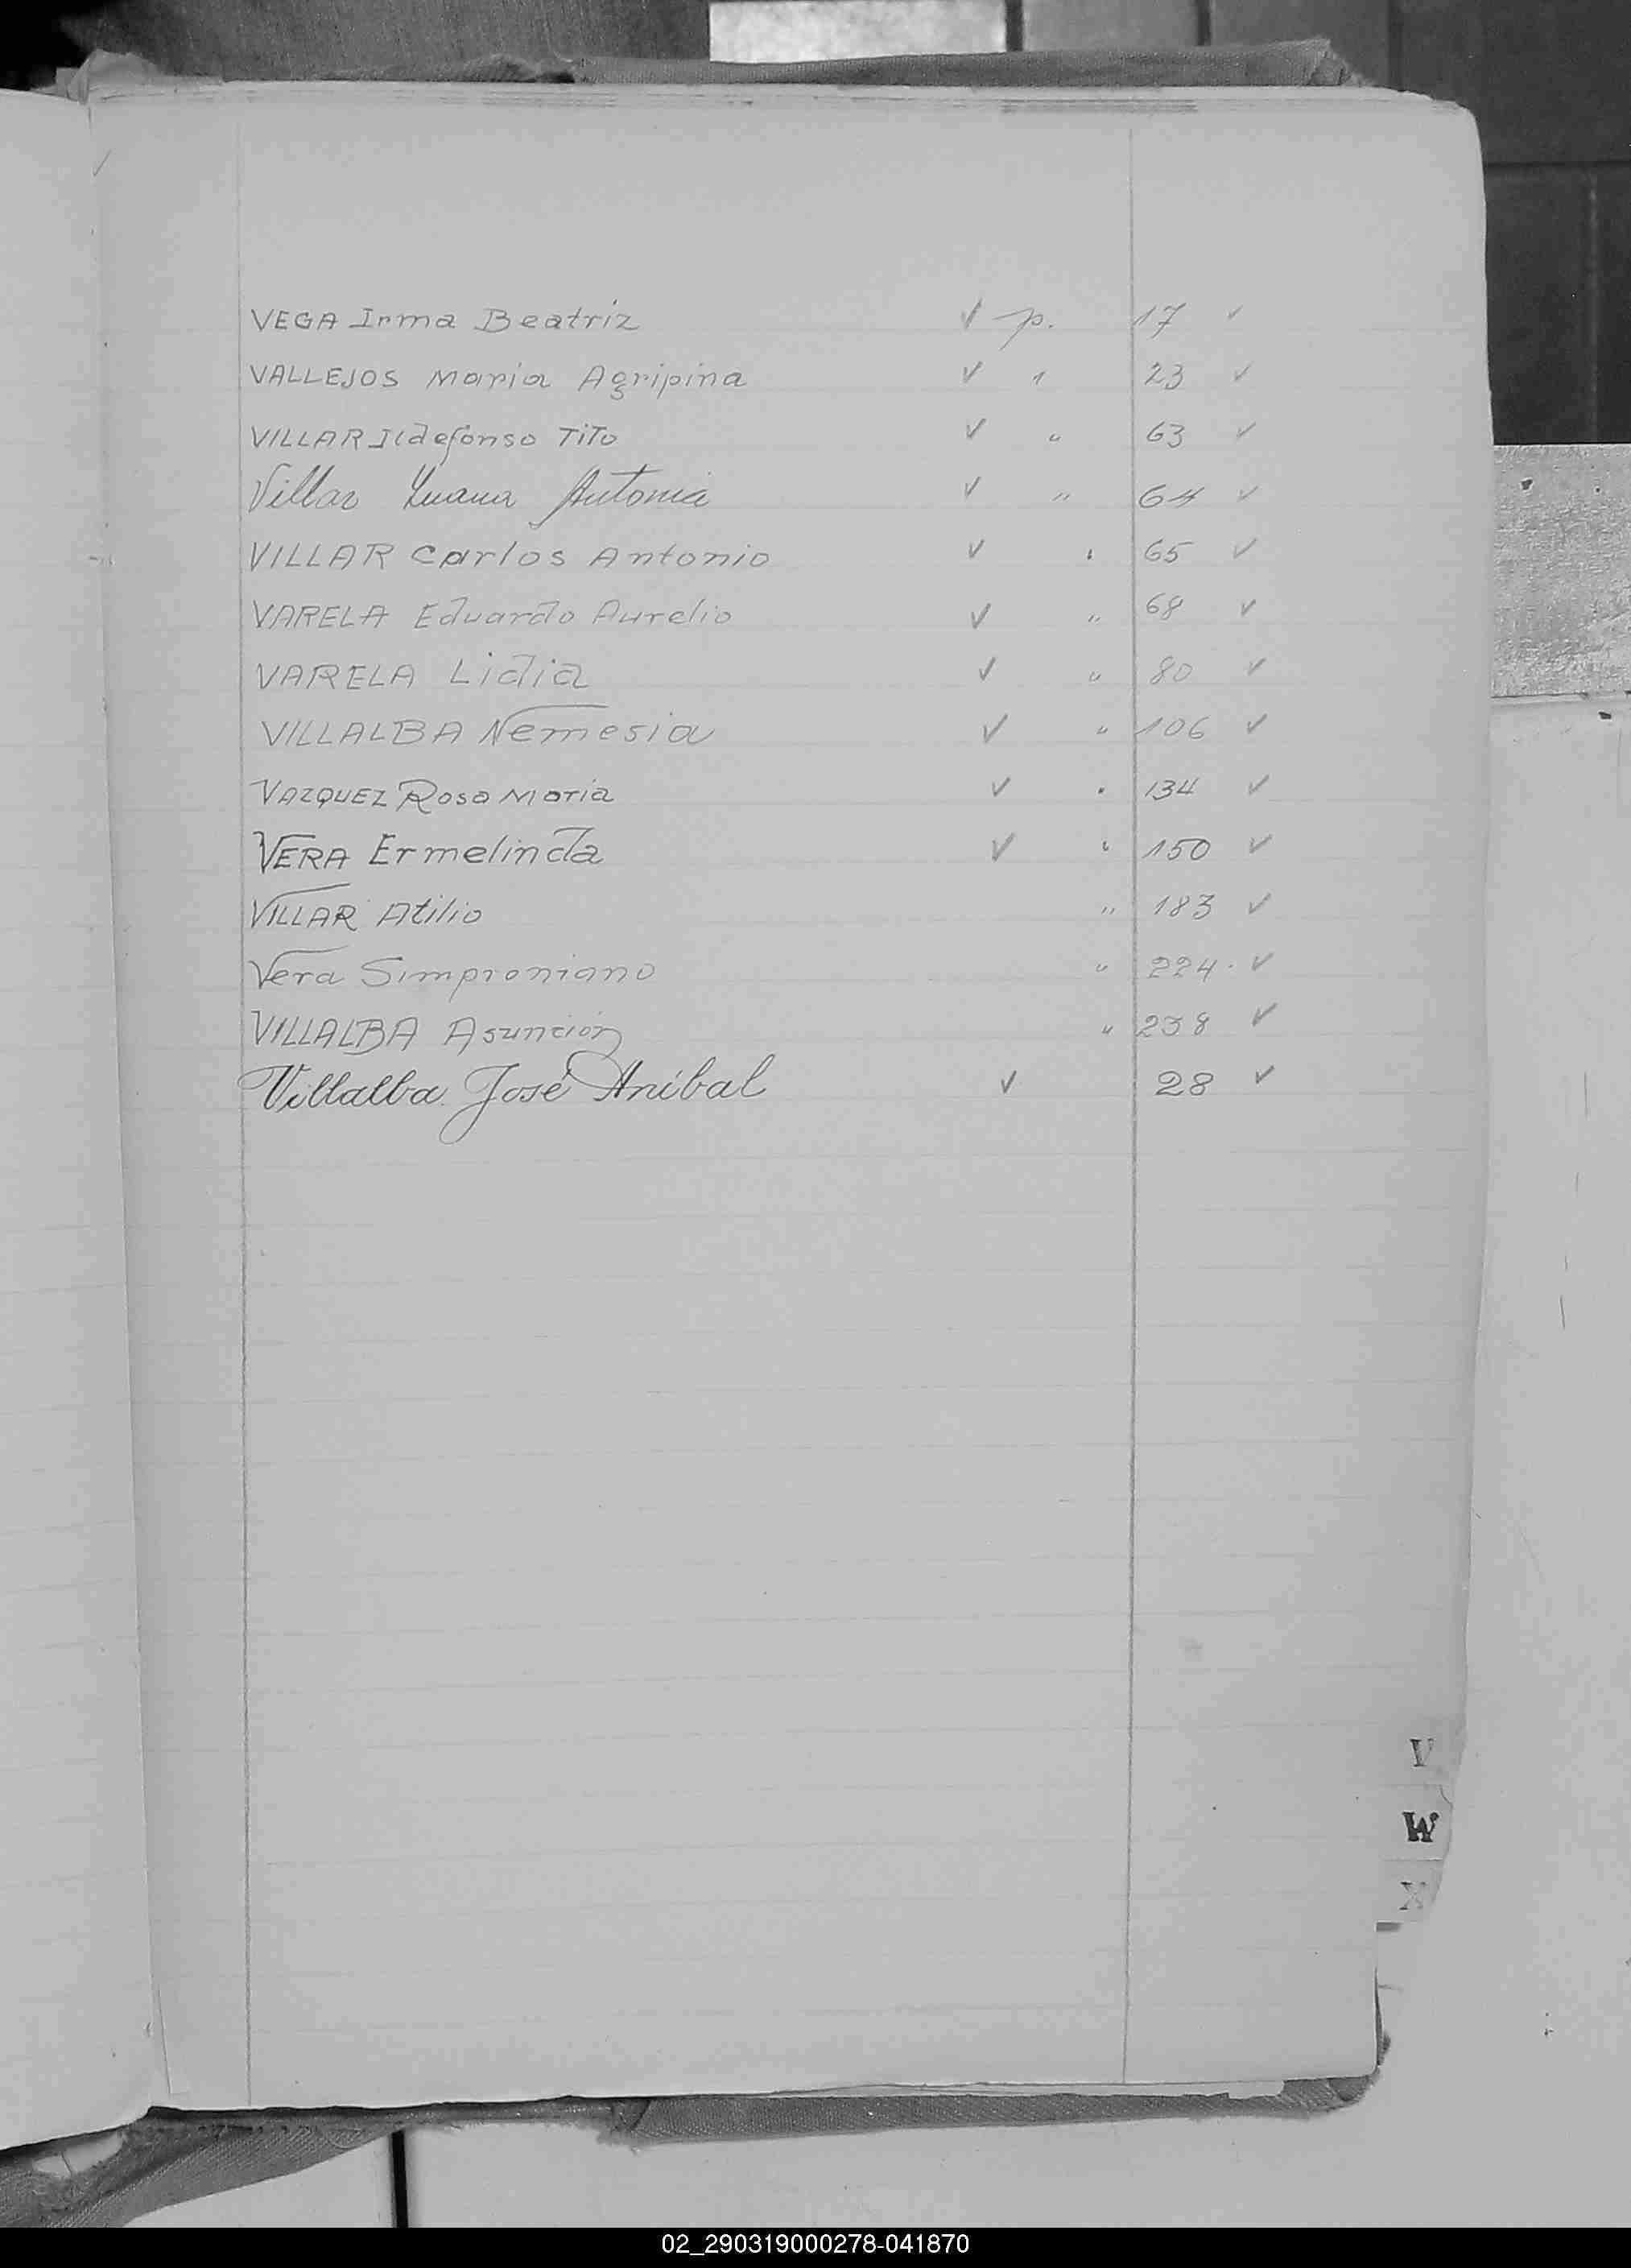 VEGA Irma Beatriz ✓ p. 17 ✓
VALLEJOS Maria Agripina ✓ " 23 ✓
VILLAR Ildefonso Tito ✓ " 63 ✓
Villar Juana Antonia ✓ " 64 ✓
VILLAR Carlos Antonio ✓ " 65 ✓
VARELA Eduardo Aurelio ✓ " 68 ✓
VARELA Lidia ✓ " 80 ✓
VILLALBA Nemesia ✓ " 106 ✓
VAZQUEZ Rosa Maria ✓ " 134 ✓
VERA Ermelinda ✓ " 150 ✓
VILLAR Atilio " 183 ✓
Vera Simproniano " 224. ✓
VILLALBA Asunción " 238 ✓
Villalba José Aníbal ✓ 28 ✓
V
W
X
02_290319000278-041870